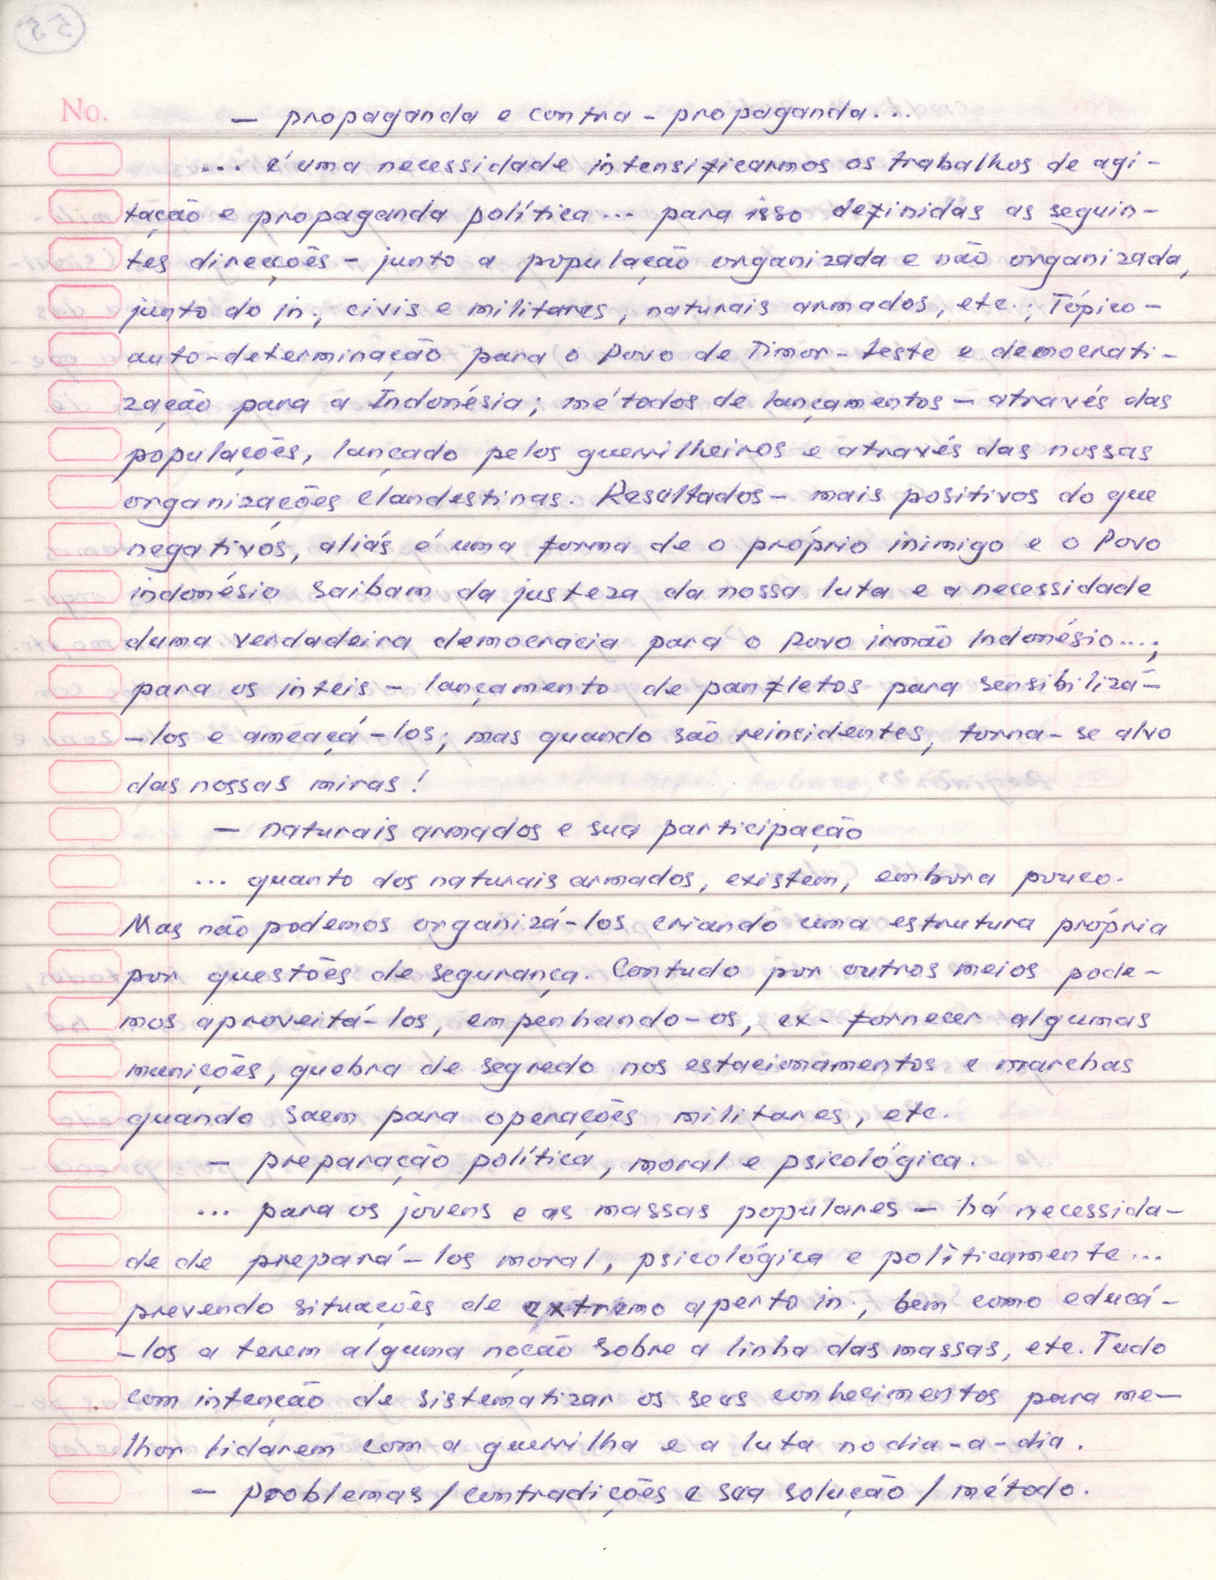 No.
— propaganda e contra - propaganda...
... é uma necessidade intensificarmos os trabalhos de agi-
tação e propaganda política ... para isso definidas as seguin-
tes direcções - junto a população organizada e não organizada,
junto do in., civis e militares, naturais armados, etc.; Tópico -
auto-determinação para o Povo de Timor-Leste e democrati-
zação para a Indonésia; métodos de lançamentos - através das
populações, lançado pelos guerrilheiros e através das nossas
organizações clandestinas. Resultados - mais positivos do que
negativos, aliás é uma forma de o próprio inimigo e o Povo
indonésio saibam da justeza da nossa luta e a necessidade
duma verdadeira democracia para o Povo irmão Indonésio...;
para os inteis - lançamento de panfletos para sensibilizá-
-los e ameaçá-los; mas quando são reincidentes, torna-se alvo
das nossas miras!
— naturais armados e sua participação
... quanto dos naturais armados, existem, embora pouco.
Mas não podemos organizá-los criando uma estrutura própria
por questões de segurança. Contudo por outros meios pode-
mos aproveitá-los, empenhando-os, ex- fornecer algumas
munições, quebra de segredo nos estacionamentos e marchas
quando saem para operações militares, etc.
— preparação política, moral e psicológica.
... para os jovens e as massas populares - há necessida-
de de prepará-los moral, psicológica e políticamente ...
prevendo situações de extremo aperto in., bem como educá-
-los a terem alguma noção sobre a linha das massas, etc. Tudo
com intenção de sistematizar os seus conhecimentos para me-
lhor lidarem com a guerrilha e a luta no dia-a-dia.
— Problemas / contradições e sua solução / método.